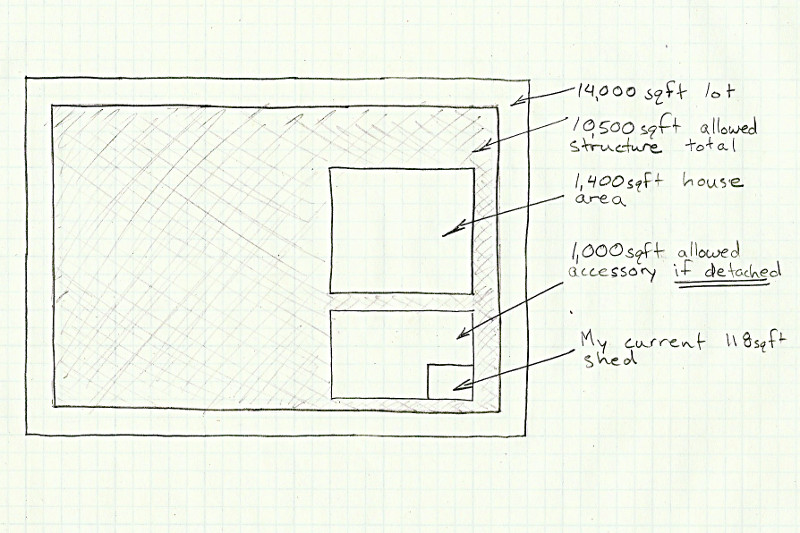 14,000 sqft lot
10,500 sqft allowed
structure total
1,400 sqft house
area
1,000 sqft allowed
accessory if detached
My current 118 sqft
shed